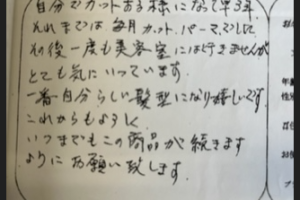 自分でカットする様になって早3年
それまでは毎月カット、パーマでした。
その後一度も美容室には行きませんが
とても気にいっています。
一番自分らしい髪型になり嬉しいです。
これからもよろしく
いつまでもこの商品が続きます
ようにお願い致します。